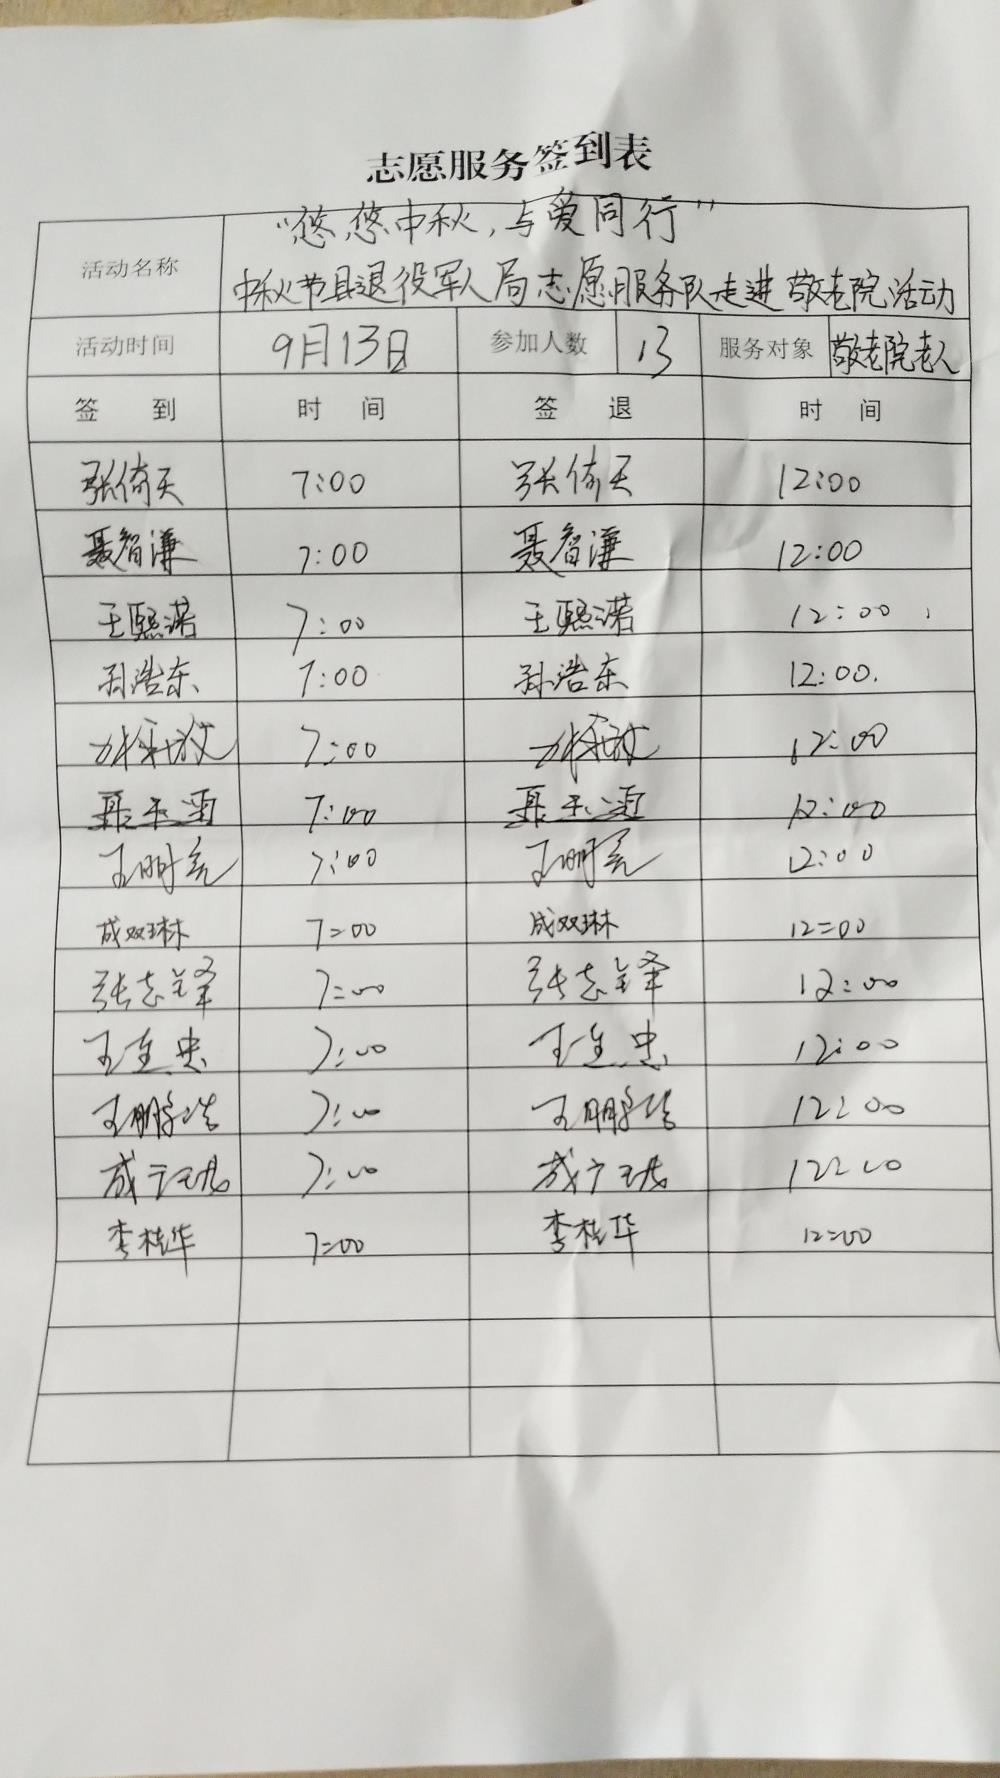 志愿服务签到表
活动名称 “悠悠中秋，与爱同行”
中秋节县退役军人局志愿服务队走进敬老院活动
活动时间 9月13日 参加人数 13 服务对象 敬老院老人
签到 时间 签退 时间
张倚天 7:00 张倚天 12:00
聂智谦 7:00 聂智谦 12:00
王熙诺 7:00 王熙诺 12:00
孙浩东 7:00 孙浩东 12:00.
7:00 12:00
7:00 12:00
王明亮 7:00 王明亮 12:00
成双琳 7:00 成双琳 12:00
张志锋 7:00 张志锋 12:00
7:00 12:00
7:00 12:00
7:00 12:00
李桂华 7:00 李桂华 12:00